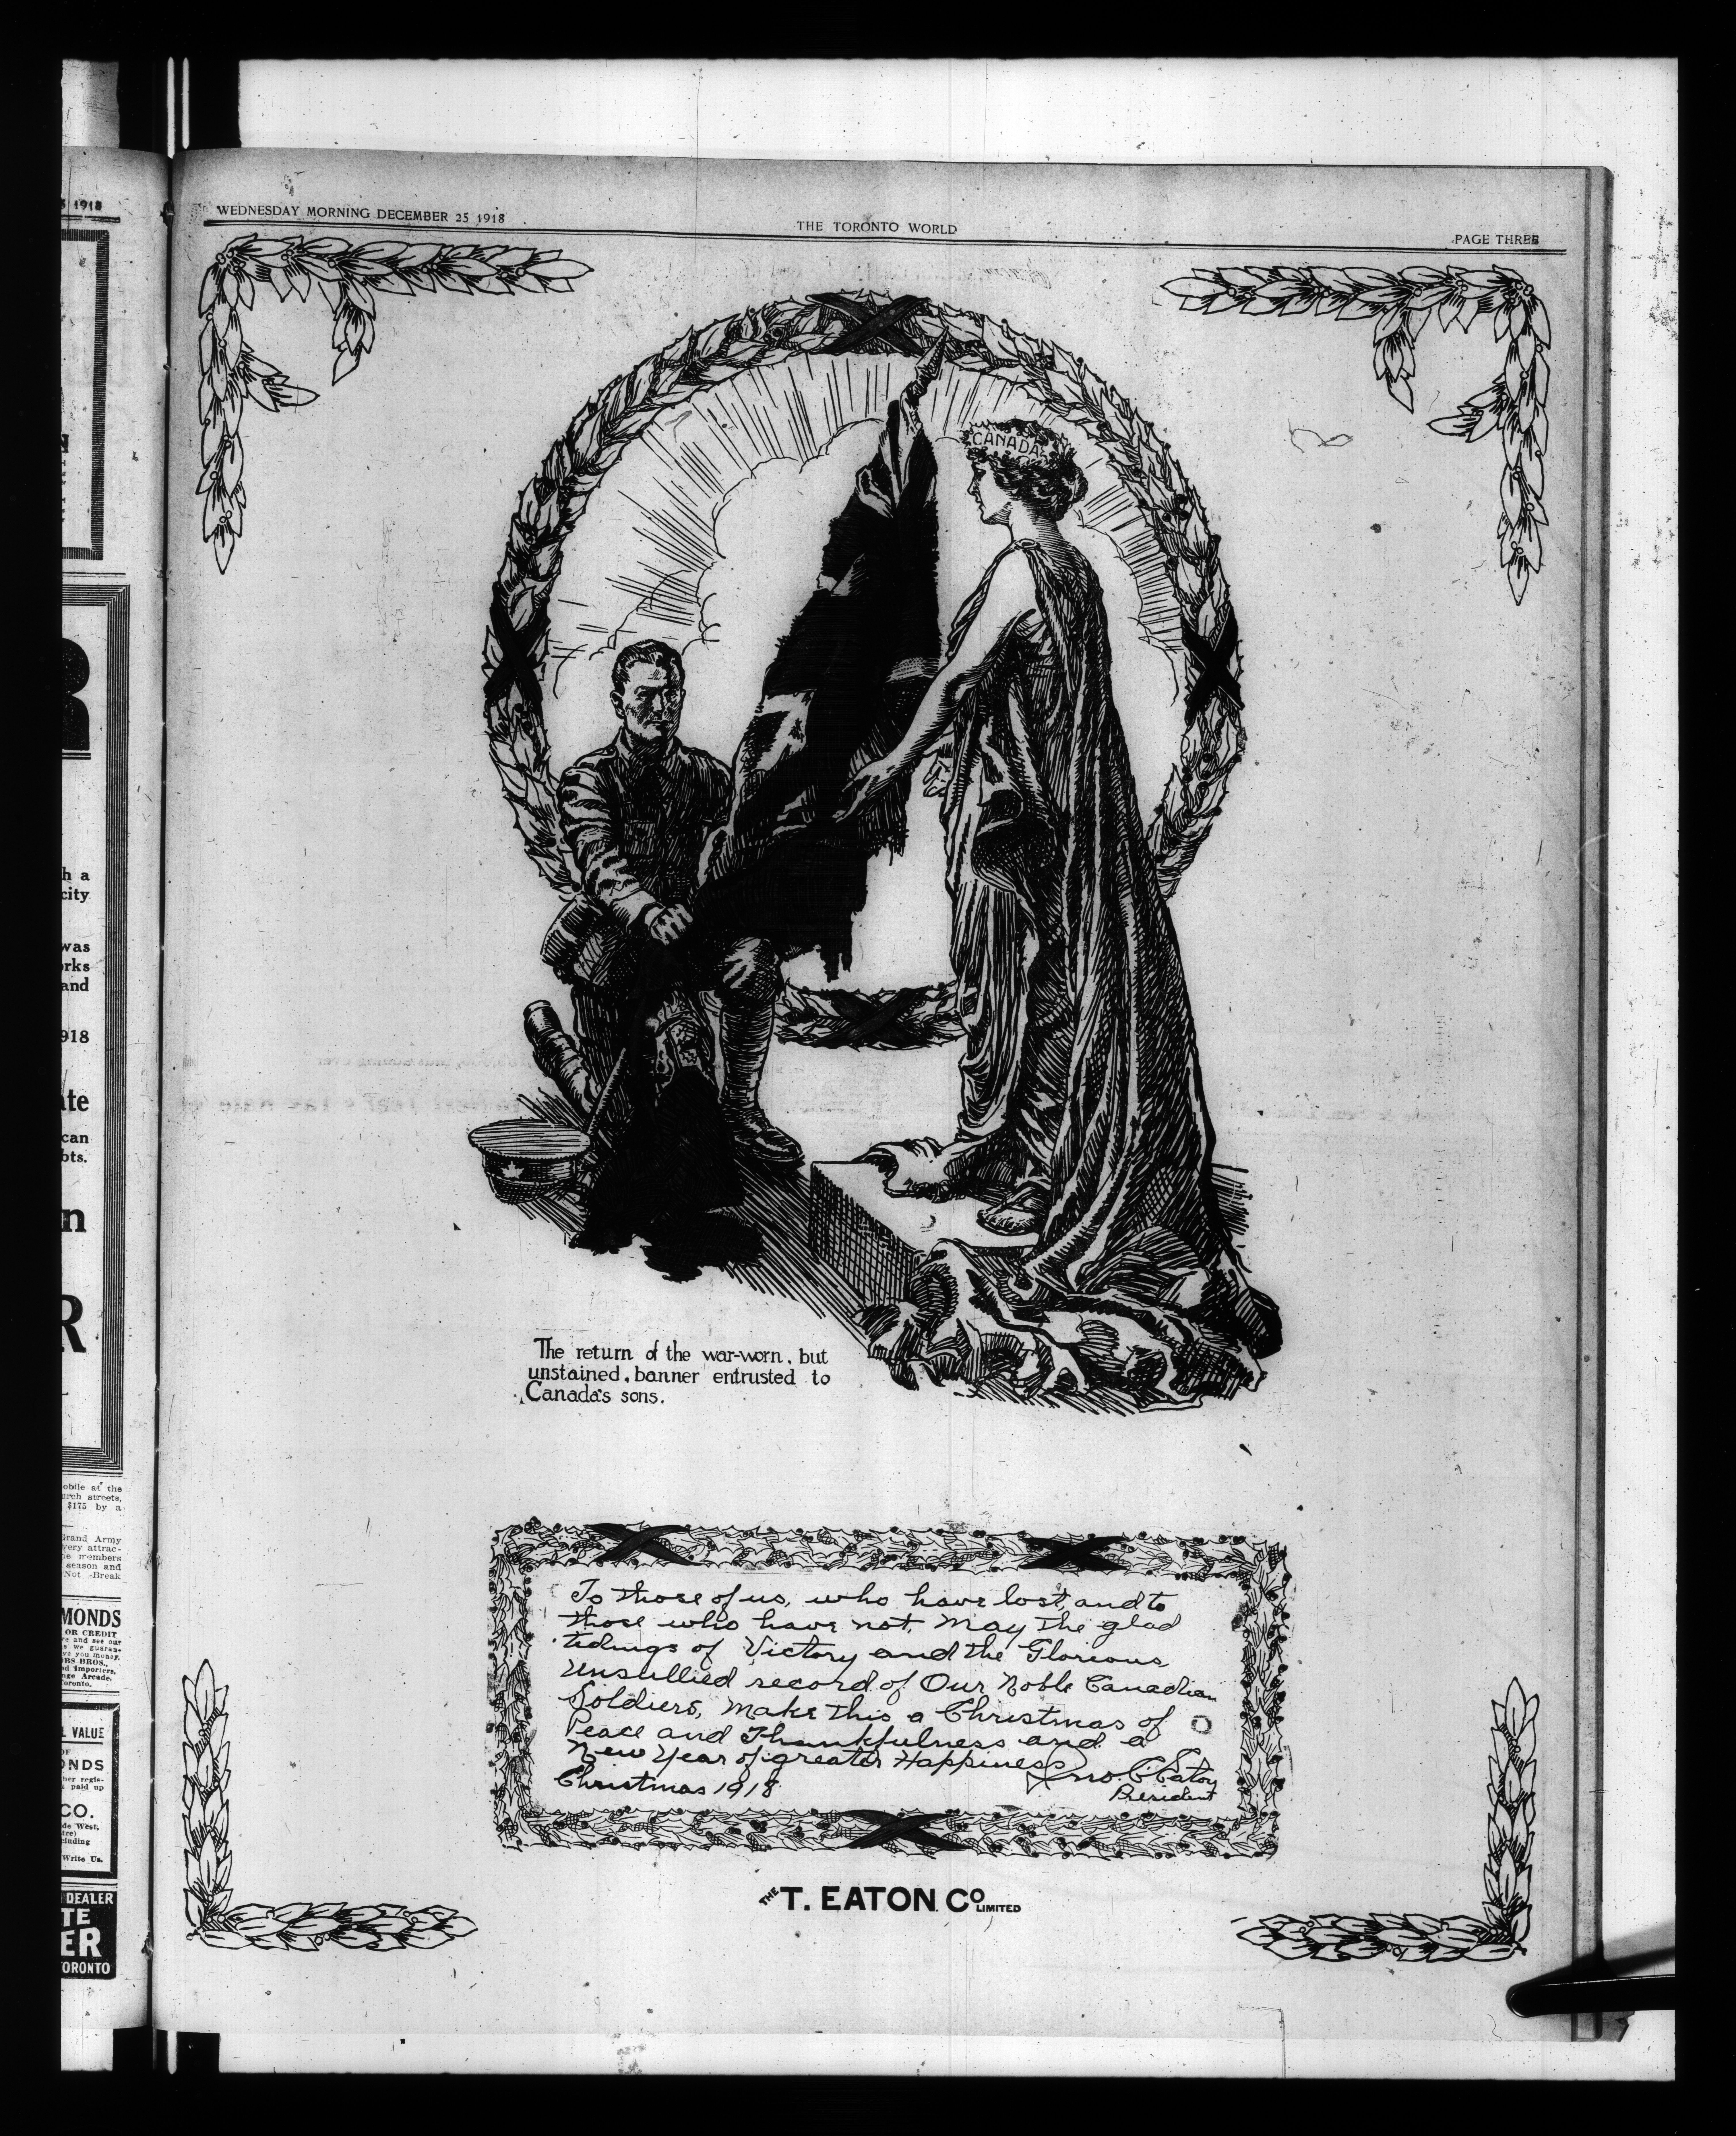 5 1918
N
R
h a
city
was
orks
and
1918
ate
can
bts.
n
R
obile at the
urch streets,
$175 by a
Grand Army
very attrac-
members
season and
Not Break
MONDS
OR CREDIT
and see our
we guaran-
you money.
BROS.,
Importers,
Arcade,
Toronto.
VALUE
OF
ONDS
her regis-
paid up
CO.
de West,
Write Us.
DEALER
TE
ER
TORONTO
WEDNESDAY MORNING DECEMBER 25 1918
THE TORONTO WORLD
PAGE THREE
CANADA
The return of the war-worn, but
unstained, banner entrusted to
Canada's sons.
To those of us, who have lost, and to
those who have not, may the glad
tidings of Victory and the Glorious
Unsullied record of Our Noble Canadian
Soldiers, make this a Christmas of
Peace and Thankfulness and a
New Year of greater Happiness
Jno. C. Eaton
Christmas 1918
President
THE T. EATON CO LIMITED